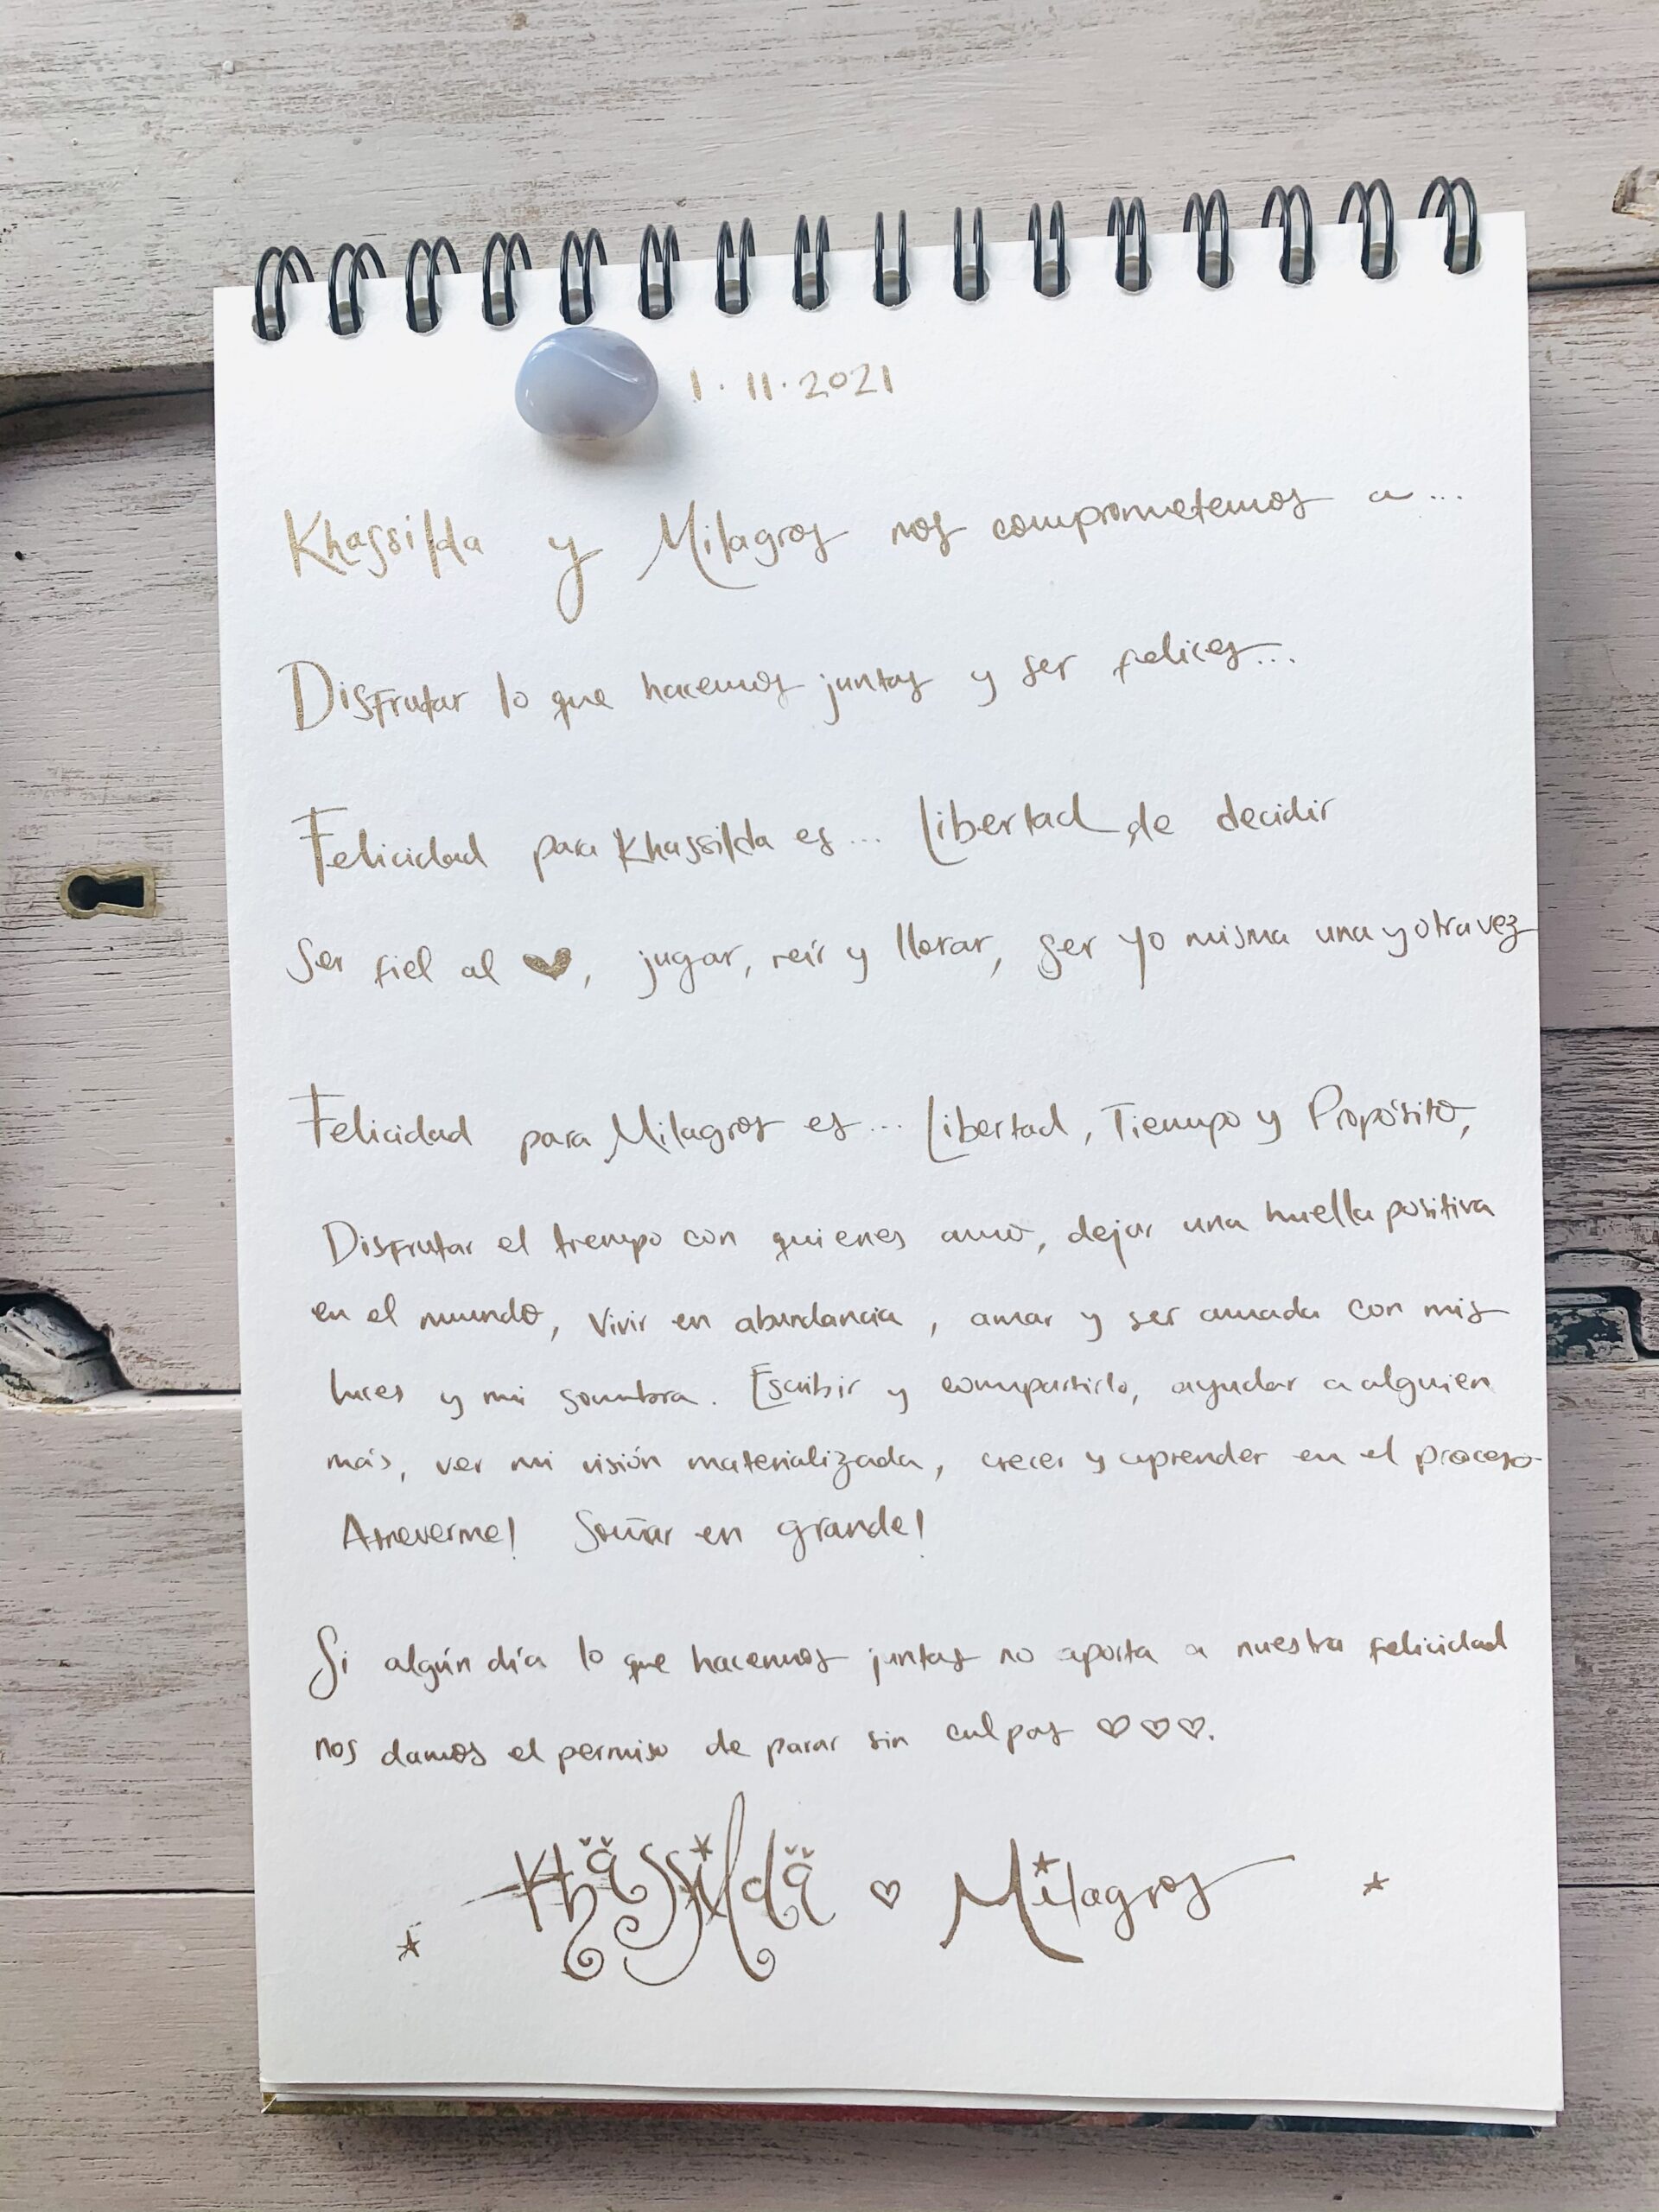 1.11.2021
Khassilda y Milagros nos comprometemos a...
Disfrutar lo que hacemos juntas y ser felices...
Felicidad para Khassilda es... Libertad de decidir
Ser fiel al ♥, jugar, reír y llorar, ser yo misma una y otra vez
Felicidad para Milagros es... Libertad, Tiempo y Propósito,
Disfrutar el tiempo con quienes amo, dejar una huella positiva
en el mundo, vivir en abundancia, amar y ser amada con mis
luces y mi sombra. Escribir y compartirlo, ayudar a alguien
más, ver mi visión materializada, crecer y aprender en el proceso
Atreverme! Soñar en grande!
Si algún día lo que hacemos juntas no aporta a nuestra felicidad
nos damos el permiso de parar sin culpas ♡♡♡.
Khässildä ♡ Milagros